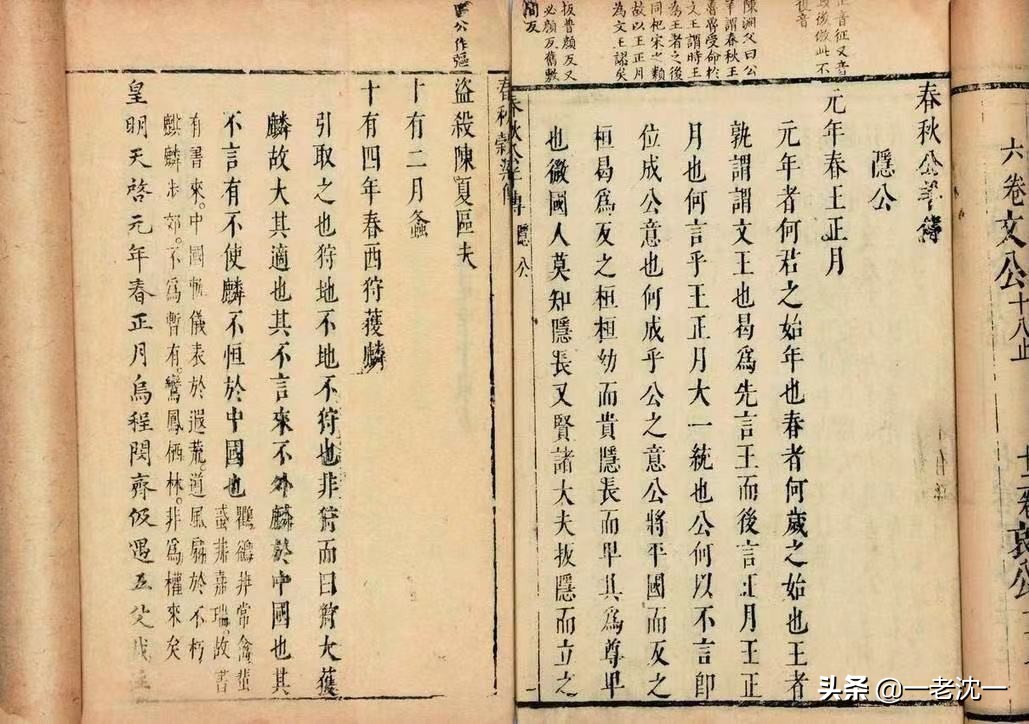 六卷文公十八止
春秋公羊傳
隱公
元年春王正月
元年者何君之始年也春者何歲之始也王者
孰謂謂文王也曷為先言王而後言正月王正
月也何言乎王正月大一統也公何以不言即
位成公意也何成乎公之意公將平國而反之
桓曷為反之桓桓幼而貴隱長而卑其為尊卑
也微國人莫知隱長又賢諸大夫扳隱而立之
陳淵父曰公
羊謂春秋王
魯魯受命於
文王謂時王
為王者之後
同杞宋之類
故以王正月
為文王謬矣
扳普顏反又
必顏反舊敷
間反
春秋穀梁傳 隱公
盜殺陳夏區夫
十有二月螽
十有四年春西狩獲麟
引取之也狩地不地不狩也非狩而曰狩大獲
麟故大其適也其不言來不外麟於中國也其
不言有不使麟不恒於中國也
鸜鵒非常禽蜚
蜮非嘉瑞。故書
有書來。中國暫儀表於遐荒。道風扇於不朽
麒麟出郊。不為暫有。鸞鳳栖林。非為權來矣
皇明天啓元年春正月烏程閔齊伋遇五父
一老沈一
头条 @一老沈一